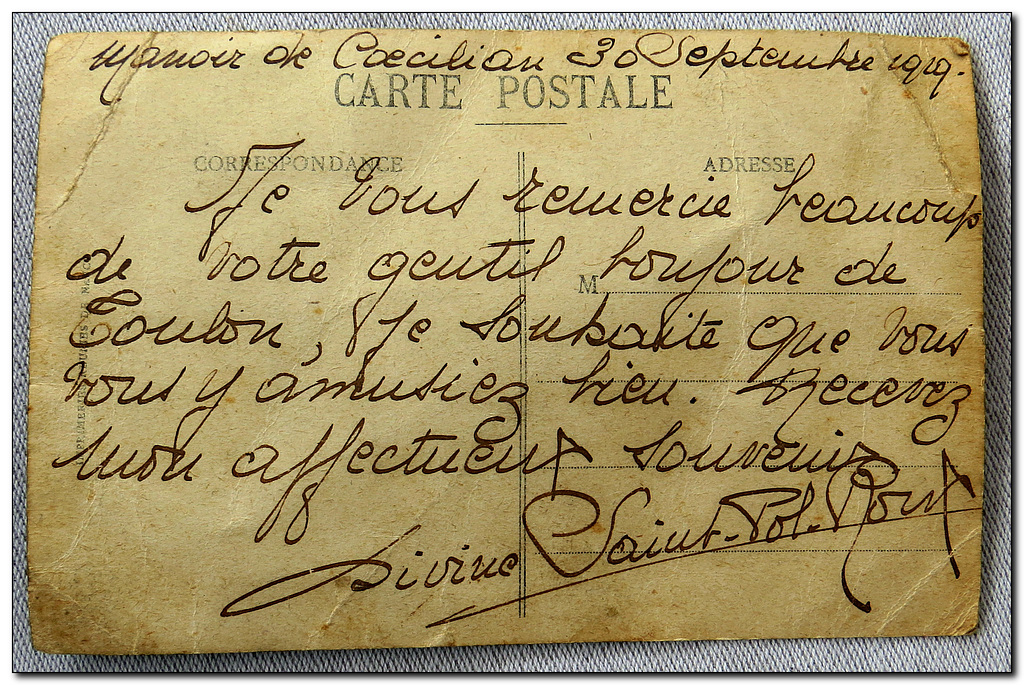 Manoir de Cœcilian 30 Septembre 1919.
CARTE POSTALE
CORRESPONDANCE
ADRESSE
Je vous remercie beaucoup
de votre gentil bonjour de
M
Toulon, Je souhaite que vous
vous y amusiez bien. Recevez
mon affectueux souvenir
Divine Saint-Pol-Roux